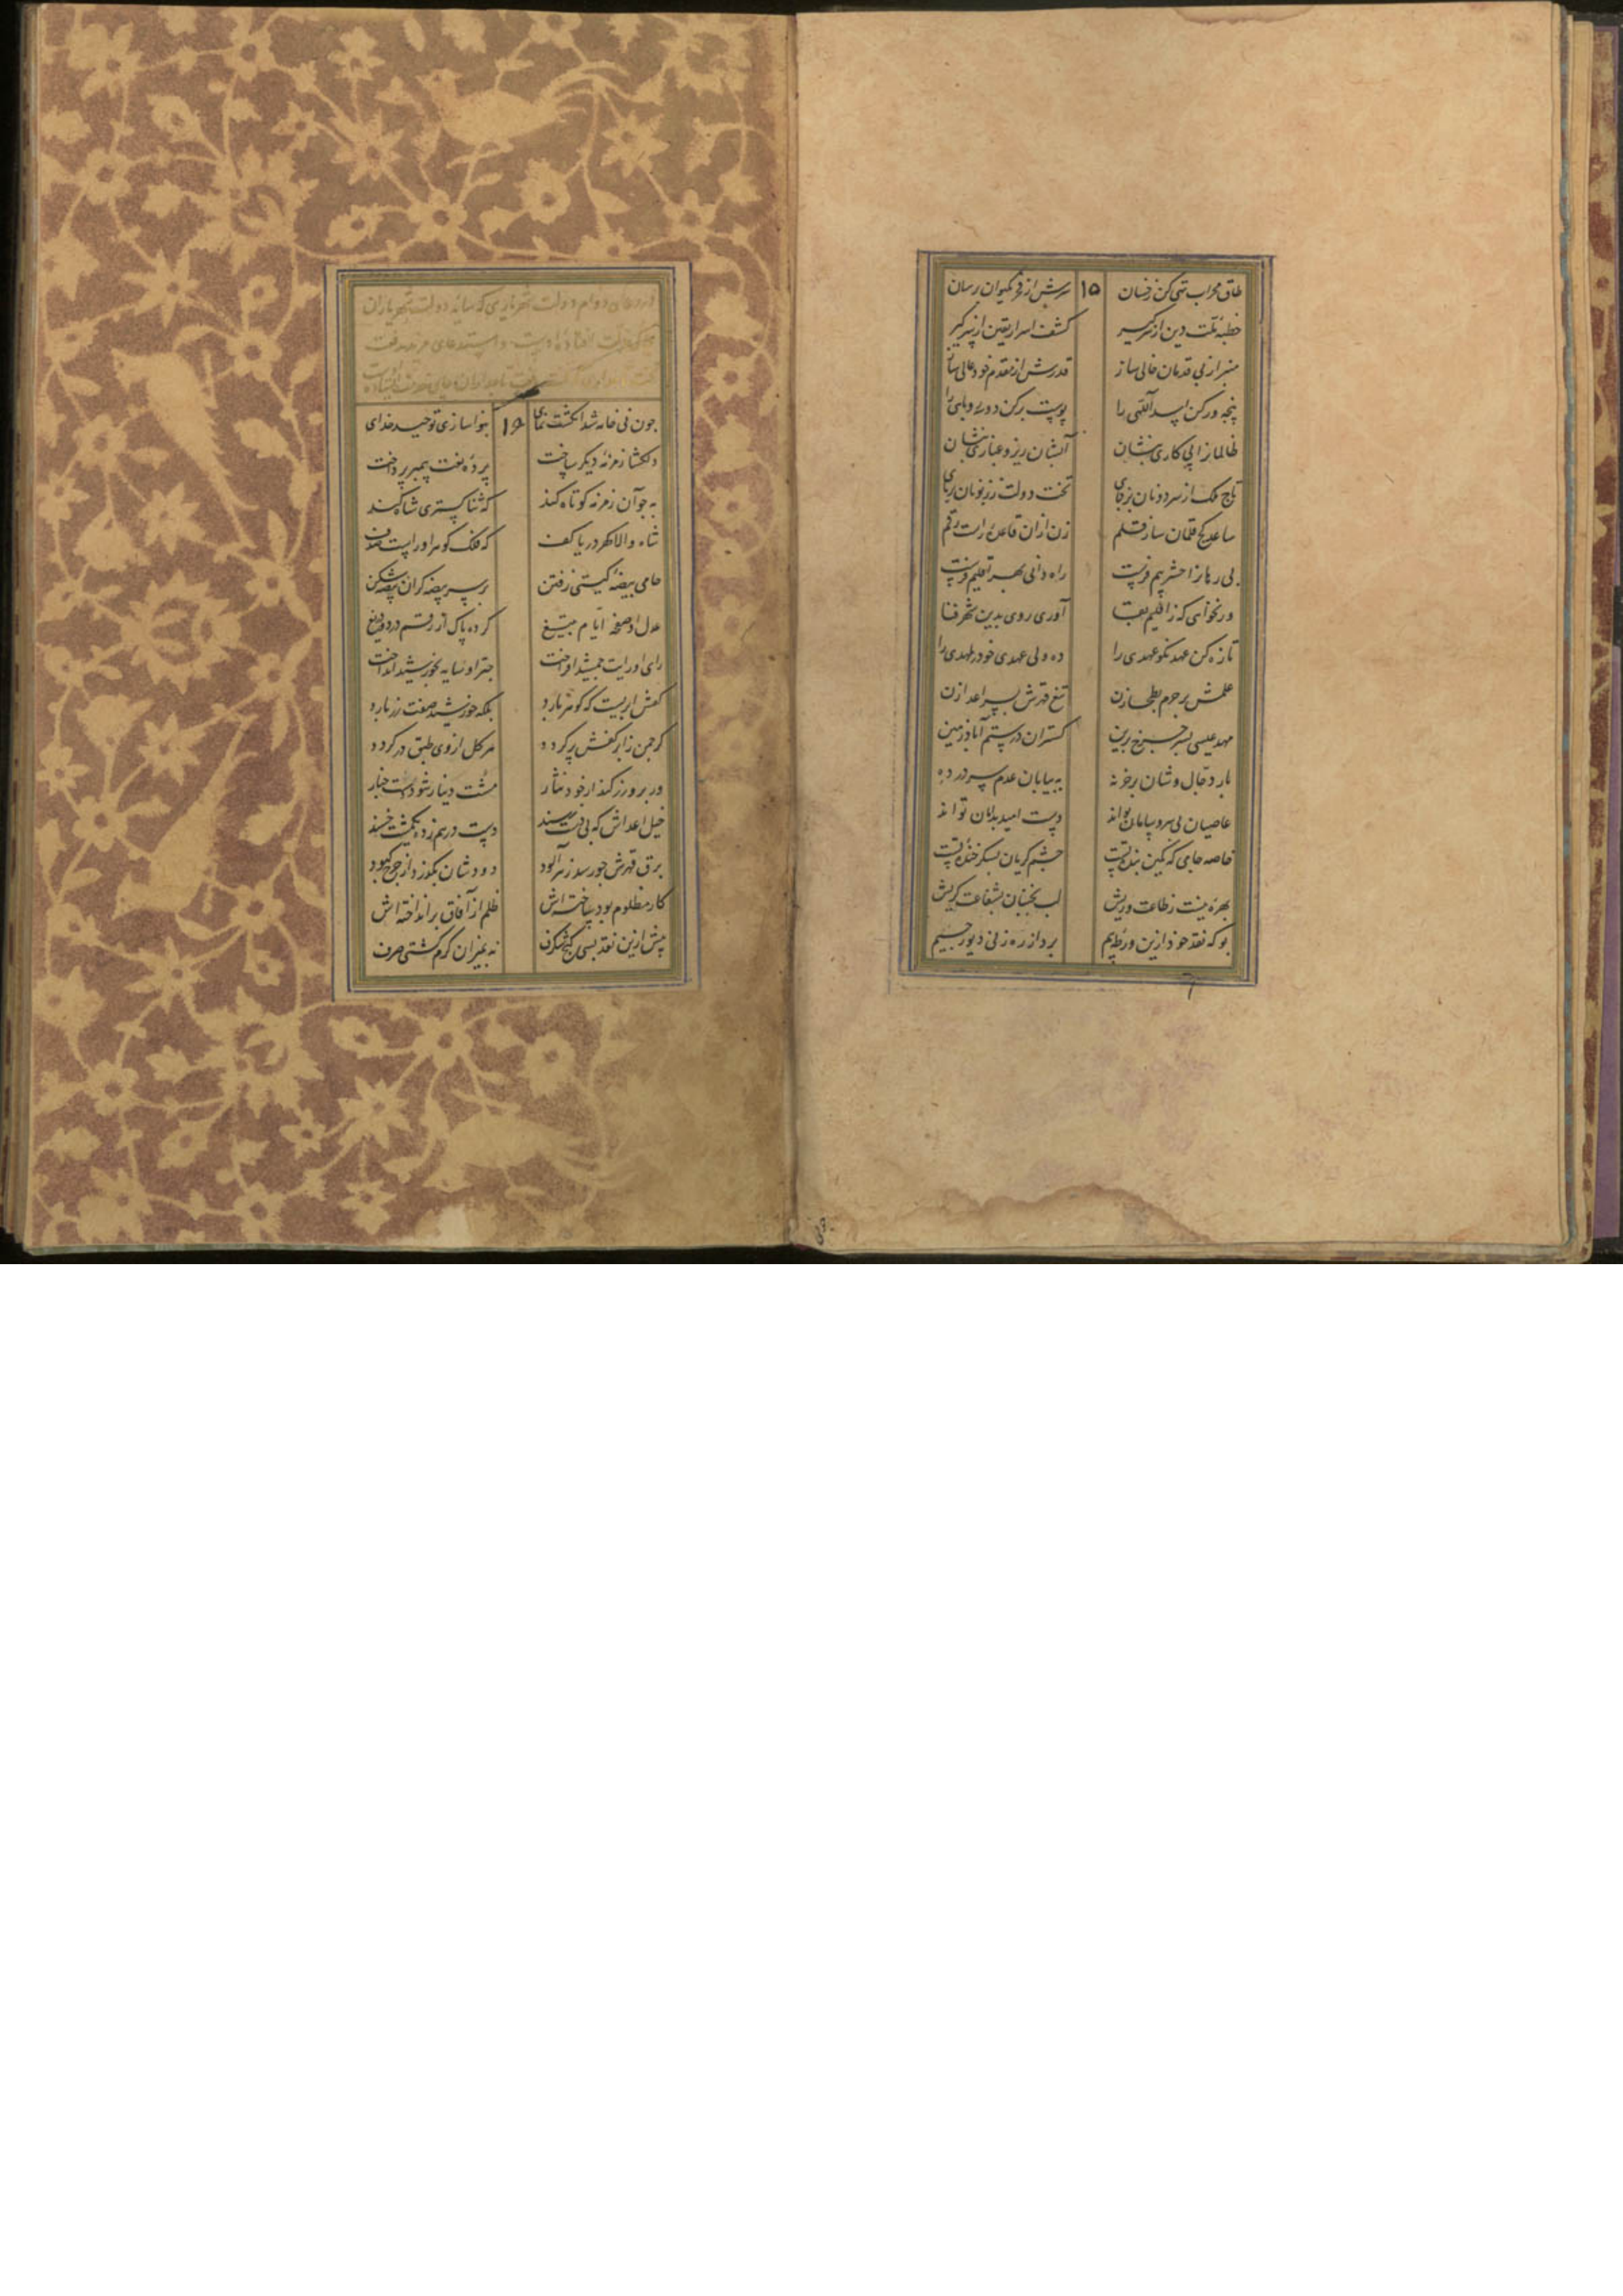 طاق محراب تهی کن ز خسان ۱۵ سرش از فخر بکیوان رسان
خطبه ملت دین از سر گیر کشف اسرار یقین از سر گیر
منبر از بی قدمان خالی ساز قدرش از مقدم خود عالی ساز
پنجه ور کن اسد اللهی را پوست برکن دو سه روباهی را
ظالمان را پی کاری بنشان آبشان ریز و غباری بنشان
تاج ملک از سر دونان بربای تخت دولت ز زبونان بربای
ساعد کج قلمان ساز قلم زن از ان قاعده راست رقم
بی رهان را حشر بیم فرست راه دانی بهر تعلیم فرست
ور نخواهی که ز اقلیم بقا آوری روی بدین شهر فنا
تازه کن عهد نکو عهدی را ده ولی عهدی خود مهدی را
علمش بر حرم بطحا زن تیغ قهرش بسر اعدا زن
مهد عیسی بسر چرخ برین گستران در ستم آباد زمین
بار دجال وشان بر خر نه به بیابان عدم سر در ده
عاصیان بی سر و سامان تو اند دست امید بدامان تو اند
خاصه جامی که کمین بنده تست چشم گریان بشکر خنده تست
بهره نیست ز طاعت وریش لب بجنبان بشفاعت گریش
بو که نقد خود ازین ورطه بیم برد از ره زنی دیو رجیم
دوام دولت شهریاری که سایه دولت شهریاران
چون نی خامه شد انگشت نمای ۱۶ بنوا سازی توحید خدای
دلکشا زمزمه دیگر ساخت پرده نعت پیمبر پرداخت
به چو آن زمزمه کوتاه کند که ثنا گستری شاه کند
شاه والا گهر دریا کف که فلک گوهر او راست صدف
حامی بیضه گیتی ز فتن بر سر بیضه گران بیضه شکن
عدل او صفحه ایام بتیغ کرده پاک از رقم درد و دریغ
رای او رایت جمشید افراخت چتر او سایه بخورشید انداخت
کفش ابریست که گوهر بارد بلکه خورشید صفت زر بارد
گر چمن ز ابر کفش پر گردد هر گل از وی طبق در گردد
ور برو زر کند از خود نثار مشت دینار شود دست چنار
خیل اعداش که بی فتح رسند دست در هم زده یکمشت خسند
برق قهرش چو رسد زهر آلود دودشان بگذرد از چرخ کبود
کار مظلوم بود ساخته اش ظلم از آفاق بر انداخته اش
پیش ازین نقد بسی گنج شگرف نه بمیزان کرم گشتی صرف